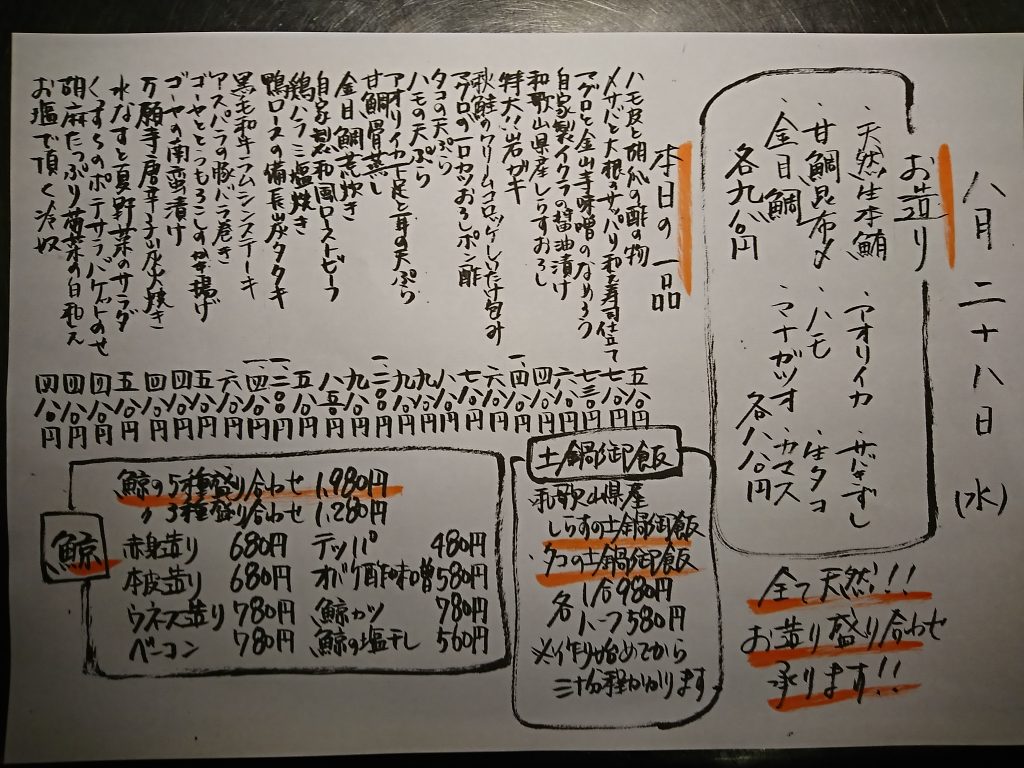 八月二十八日(水)
お造り
・天然生本鮪
・甘鯛昆布〆
・金目鯛
各九八〇円
・アオリイカ
・ハモ
・マナガツオ
・生タコ
・カマス
各八八〇円
全て天然!!
お造り盛り合わせ
承ります!!
本日の一品
ハモ皮と胡瓜の酢の物 五八〇円
〆サバと大根のサッパリ和え寿司仕立て 七八〇円
マグロと金山寺味噌のなめろう 七三〇円
自家製イクラの醤油漬け 六八〇円
和歌山県産しらすおろし 四八〇円
特大!岩ガキ
秋鮭のクリームコロッケしいたけ包み
マグロの一口カツおろしポン酢
タコの天ぷら
ハモの天ぷら
アオリイカ下足と耳の天ぷら
甘鯛骨蒸し
金目鯛荒炊き
自家製和風ローストビーフ
鶏ハラミ塩焼き
鴨ロースの備長炭タタキ
黒毛和牛ラムシンステーキ
アスパラの豚バラ巻き
ゴーヤととうもろこしのかき揚げ
ゴーヤの南蛮漬け
万願寺唐辛子炭火焼き
水なすと夏野菜のサラダ
くずもちのポテサラバゲットのせ
胡麻たっぷり菊菜の白和え
お塩で頂く冷奴
土鍋御飯
和歌山県産
しらすの土鍋御飯
・タコの土鍋御飯
各 1合980円
ハーフ580円
※作り始めてから
三十分程かかります
鯨
鯨の5種盛り合わせ 1,980円
〃3種盛り合わせ 1,280円
赤身造り 680円 テッパ 480円
本皮造り 680円 オバケ酢味噌 580円
ウネス造り 780円 鯨カツ 780円
ベーコン 780円 鯨の塩干し 560円